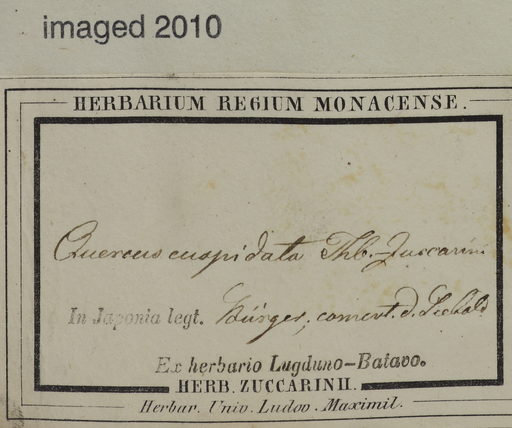 imaged 2010
HERBARIUM REGIUM MONACENSE.
Quercus cuspidata Thb. Zuccarini
In Japonia legt. Bürger, coment. d. Siebold
Ex herbario Lugduno-Batavo.
HERB. ZUCCARINII.
Herbar. Univ. Ludov. Maximil.